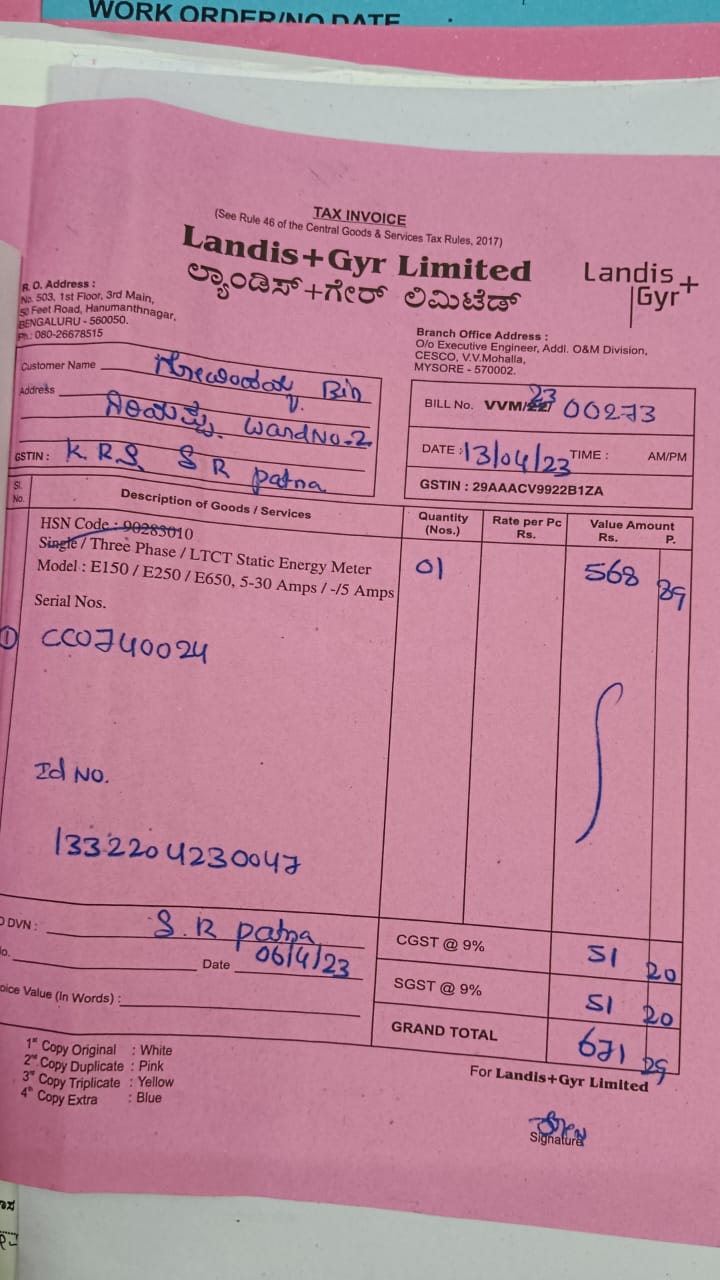 WORK ORDER/NO DATE
TAX INVOICE
(See Rule 46 of the Central Goods & Services Tax Rules, 2017)
Landis+Gyr Limited
ಲ್ಯಾಂಡಿಸ್+ಗೇರ್ ಲಿಮಿಟೆಡ್
Landis+
Gyr
R. O. Address :
No. 503, 1st Floor, 3rd Main,
50 Feet Road, Hanumanthnagar,
BENGALURU - 560050.
Ph.: 080-26678515
Branch Office Address :
O/o Executive Engineer, Addl. O&M Division,
CESCO, V.V.Mohalla,
MYSORE - 570002.
Customer Name Bin
Address Ward No-2
GSTIN : K R S S R patna
BILL No. VVM/22/ 23 00273
DATE : 13/04/23 TIME : AM/PM
GSTIN : 29AAACV9922B1ZA
Sl. No. Description of Goods / Services Quantity (Nos.) Rate per Pc Rs. Value Amount Rs. P.
HSN Code : 90283010
Single / Three Phase / LTCT Static Energy Meter 01 568 89
Model : E150 / E250 / E650, 5-30 Amps / -/5 Amps
Serial Nos.
① CC0740024
Id No.
1332204230047
O DVN : S.R patna
No. Date 06/4/23
oice Value (In Words) :
CGST @ 9% 51 20
SGST @ 9% 51 20
GRAND TOTAL 671 29
1st Copy Original : White
2nd Copy Duplicate : Pink
3rd Copy Triplicate : Yellow
4th Copy Extra : Blue
For Landis+Gyr Limited
Signature